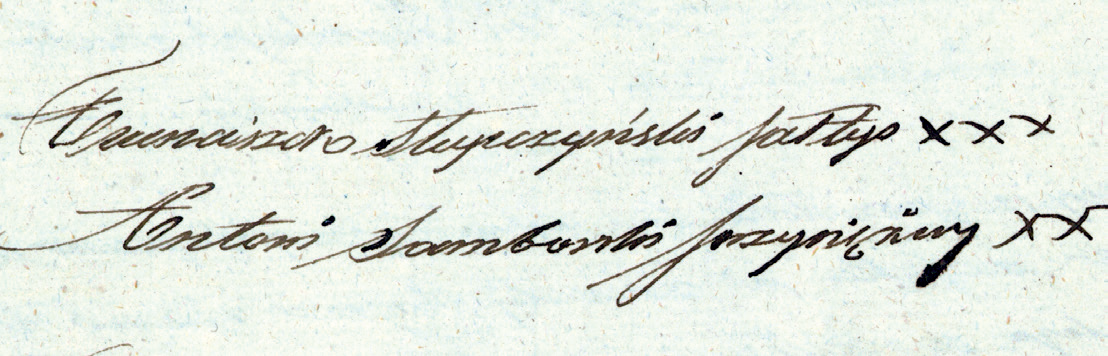 Franciszek Słupczyński sołtys x x x
Antoni Samborski przysiężny x x